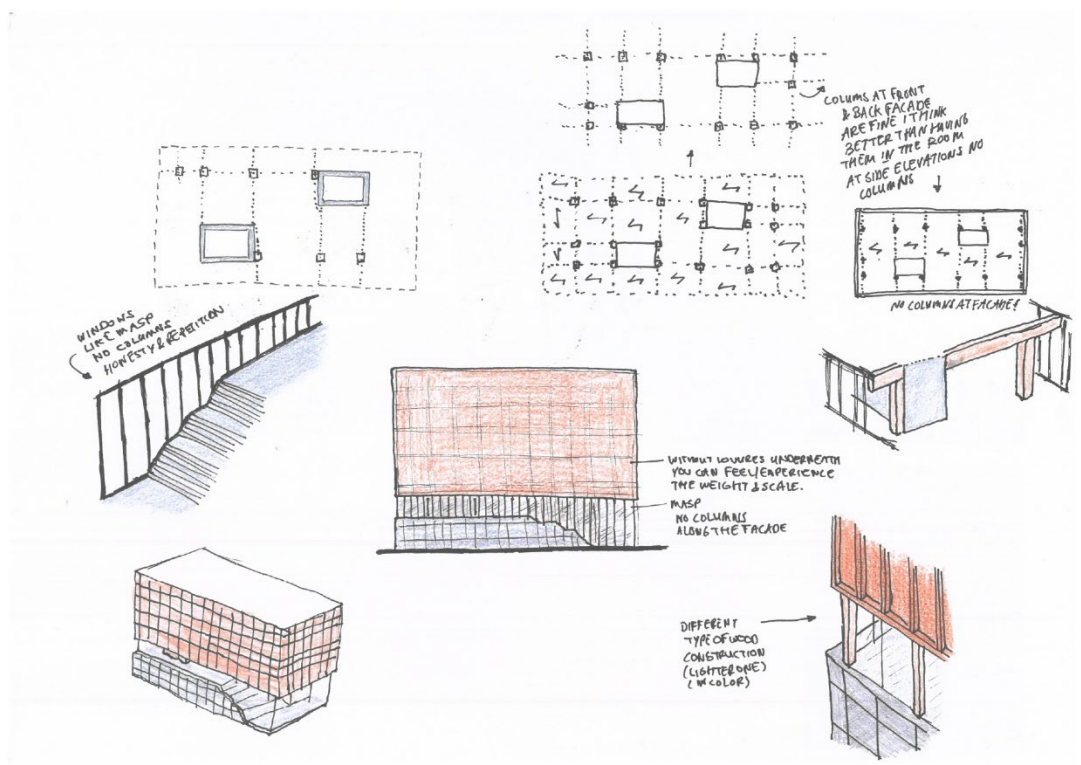 COLUMS AT FRONT
& BACK FACADE
ARE FINE I THINK
BETTER THAN HAVING
THEM IN THE ROOM
AT SIDE ELEVATIONS NO
COLUMNS
NO COLUMNS AT FACADE?
WINDOWS
LIKE MASP
NO COLUMNS
HONESTY & REPETITION
WITHOUT LOUVRES UNDERNEATH
YOU CAN FEEL/EXPERIENCE
THE WEIGHT & SCALE.
MASP
NO COLUMNS
ALONG THE FACADE
DIFFERENT
TYPE OF WOOD
CONSTRUCTION
(LIGHTER ONE)
(IN COLOR)